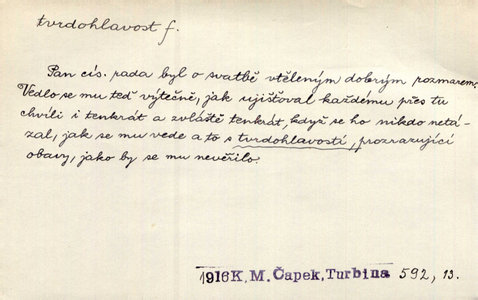 tvrdohlavost f.
Pan cís. rada byl o svatbě vtěleným dobrým rozmarem.
Vedlo se mu teď výtečně, jak ujišťoval každému přes tu
chvíli i tenkrát a zvláště tenkrát, když se ho nikdo netá-
zal, jak se mu vede a to s tvrdohlavostí, prozrazující
obavy, jako by se mu nevěřilo.
1916 K. M. Čapek, Turbina 592, 13.